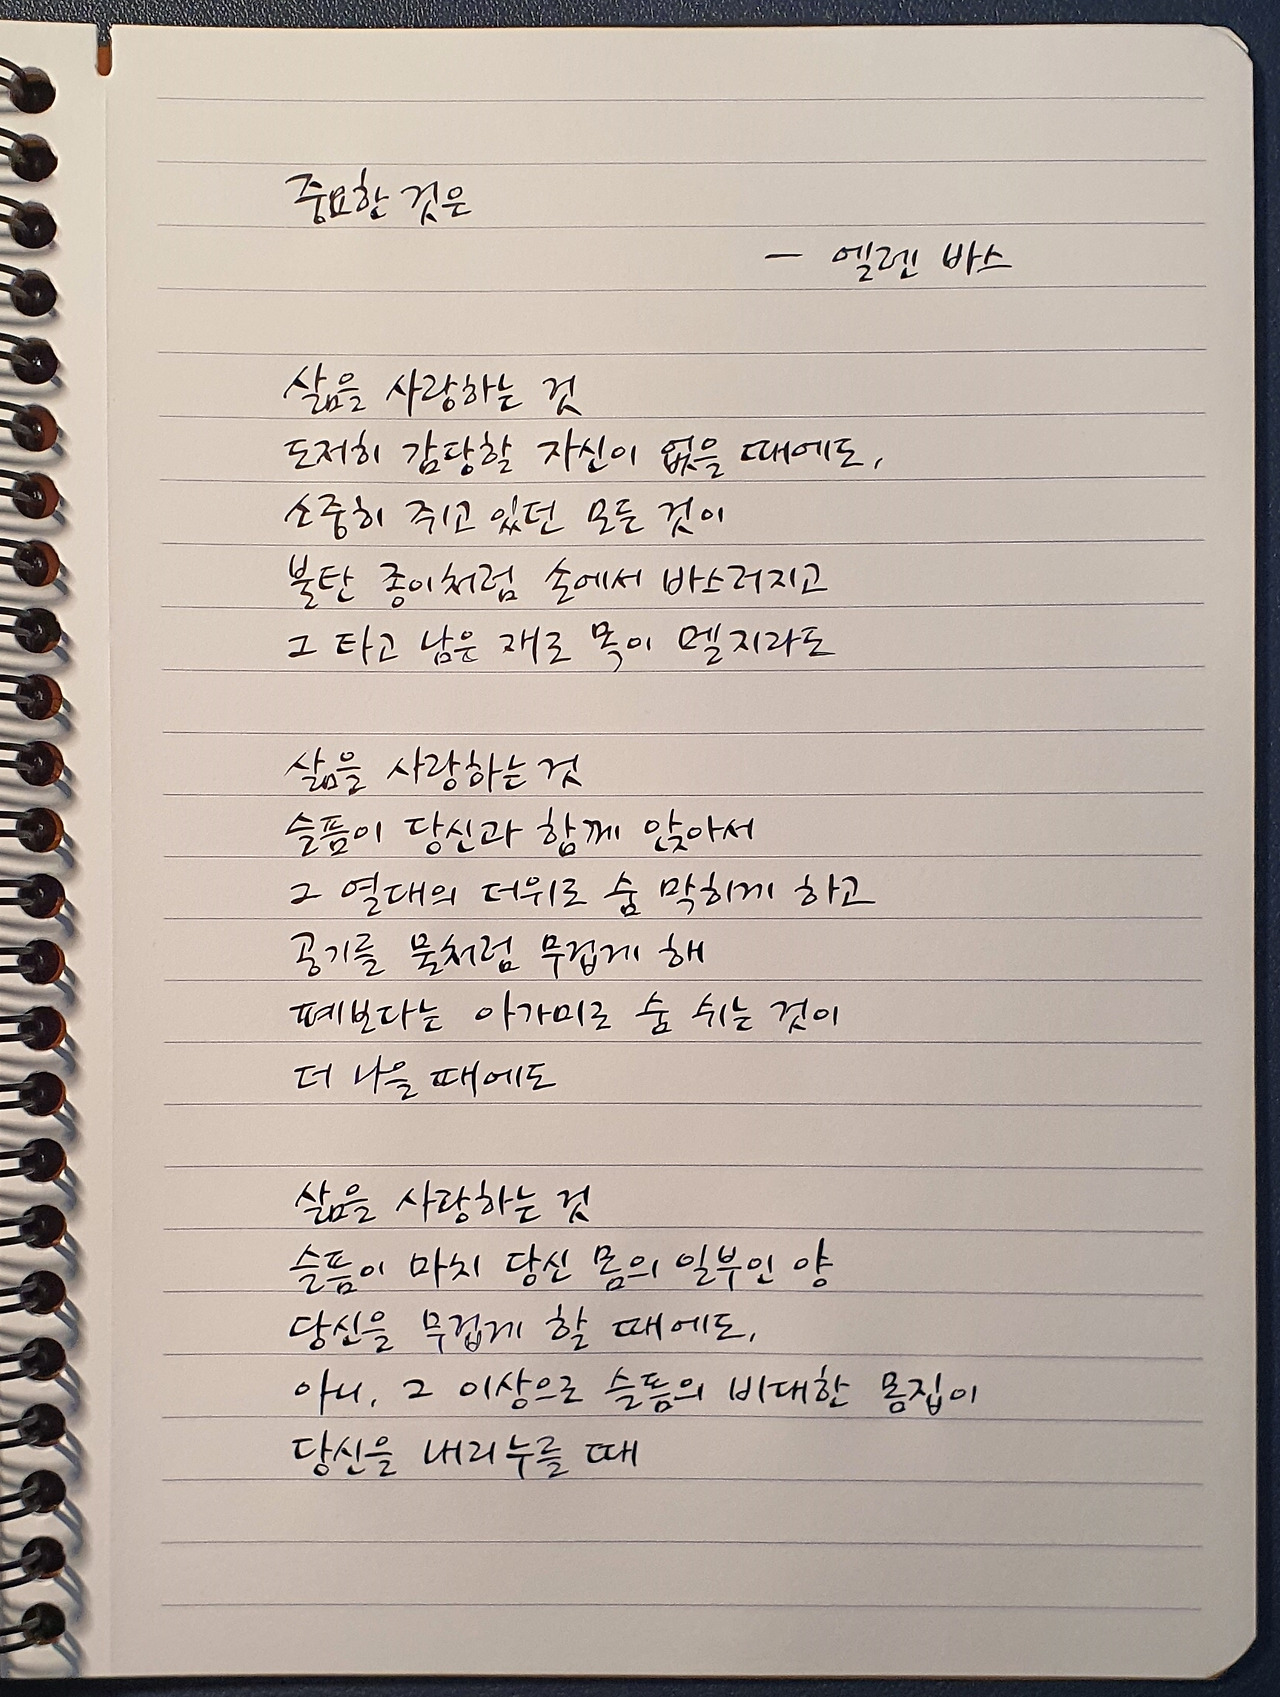 중요한 것은
— 엘렌 바스
삶을 사랑하는 것
도저히 감당할 자신이 없을 때에도,
소중히 쥐고 있던 모든 것이
불탄 종이처럼 손에서 바스러지고
그 타고 남은 재로 목이 멜지라도
삶을 사랑하는 것
슬픔이 당신과 함께 앉아서
그 열대의 더위로 숨 막히게 하고
공기를 물처럼 무겁게 해
폐보다는 아가미로 숨 쉬는 것이
더 나을 때에도
삶을 사랑하는 것
슬픔이 마치 당신 몸의 일부인 양
당신을 무겁게 할 때에도,
아니, 그 이상으로 슬픔의 비대한 몸집이
당신을 내리누를 때